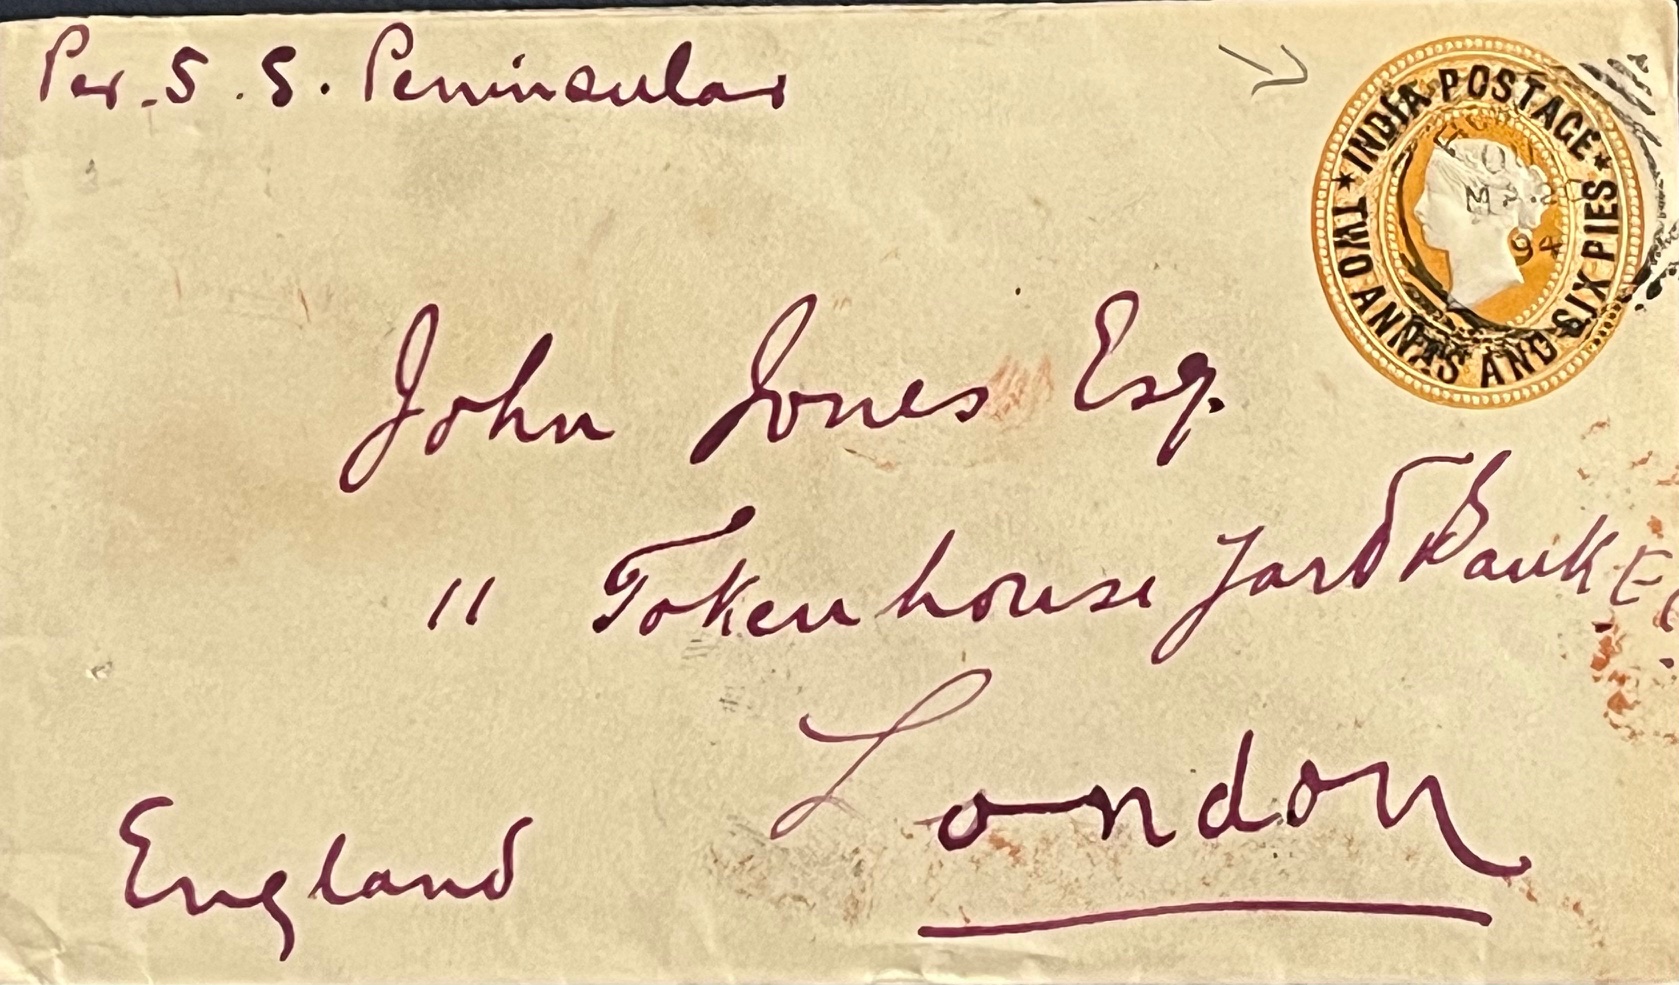 Per. S. S. Peninsular
INDIA POSTAGE
TWO ANNAS AND SIX PIES
94
John Jones Esq.
11 Tokenhouse Yard Bank. E.C.
London
England